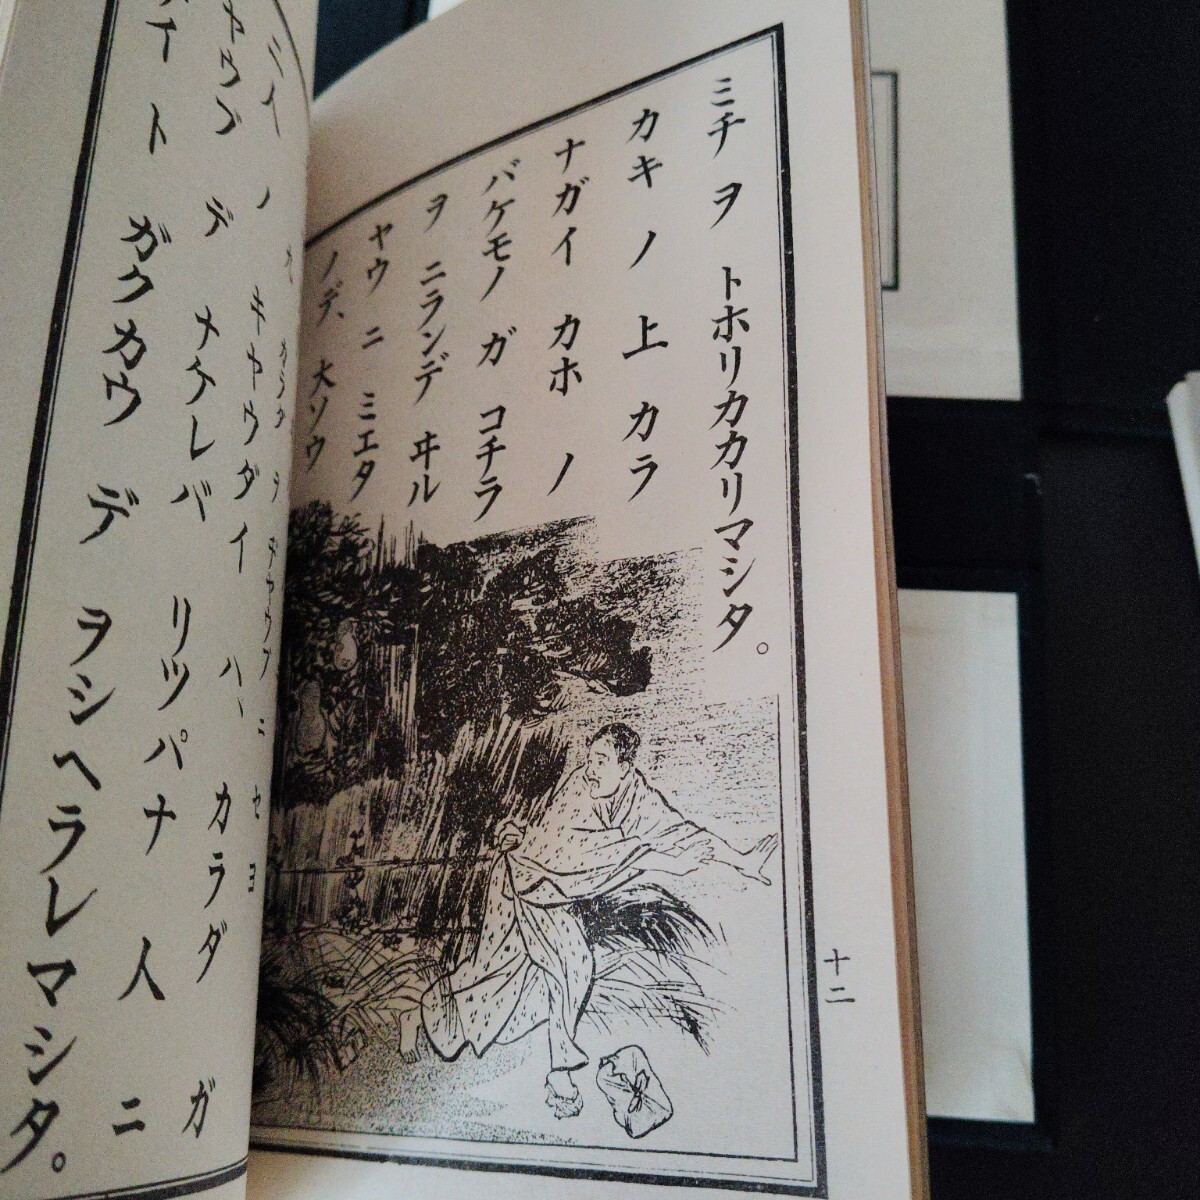 ミチ ヲ トホリカカリマシタ。
カキ ノ 上 カラ
ナガイ カホ ノ
バケモノ ガ コチラ
ヲ ニランデ ヰル
ヤウ ニ ミエタ
ノデ、大ソウ
十二
カラダ ヲ ヂヤウブ ニ セヨ
二人 ノ キヤウダイ ハ、カラダ ガ
ヤウブ デ ナケレバ リツパナ 人 ニ
イ ト ガクカウ デ ヲシヘラレマシタ。